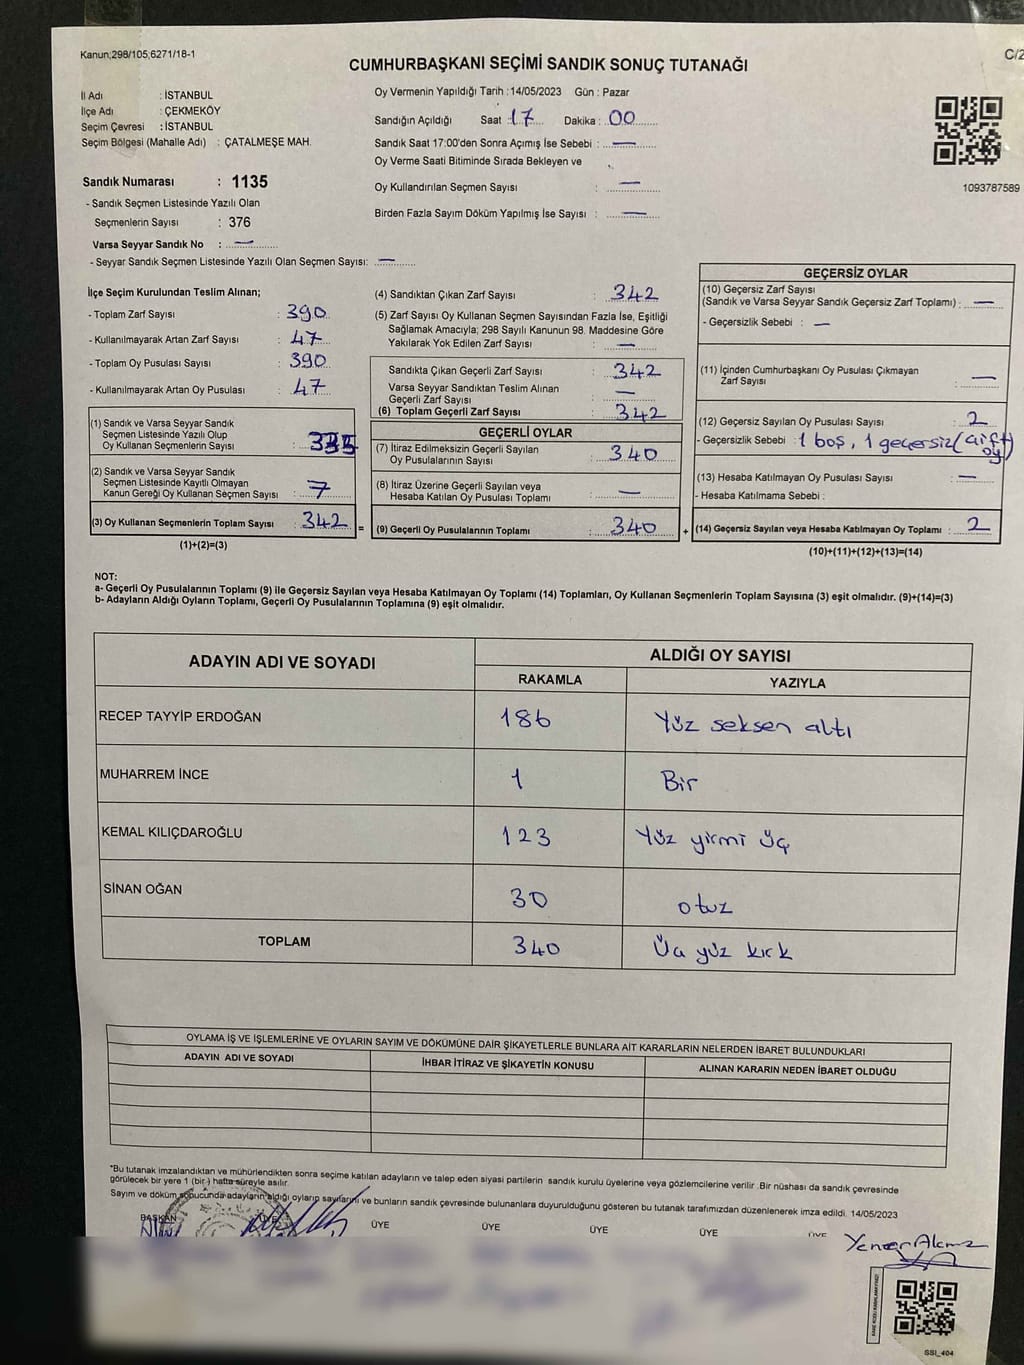 Kanun;298/105;6271/18-1
C/2
CUMHURBAŞKANI SEÇİMİ SANDIK SONUÇ TUTANAĞI
İl Adı : İSTANBUL
İlçe Adı : ÇEKMEKÖY
Seçim Çevresi : İSTANBUL
Seçim Bölgesi (Mahalle Adı) : ÇATALMEŞE MAH.
Sandık Numarası : 1135
- Sandık Seçmen Listesinde Yazılı Olan
Seçmenlerin Sayısı : 376
Varsa Seyyar Sandık No : —
- Seyyar Sandık Seçmen Listesinde Yazılı Olan Seçmen Sayısı: —
Oy Vermenin Yapıldığı Tarih :14/05/2023 Gün : Pazar
Sandığın Açıldığı Saat : 17 Dakika : 00
Sandık Saat 17:00'den Sonra Açımış İse Sebebi : —
Oy Verme Saati Bitiminde Sırada Bekleyen ve
Oy Kullandırılan Seçmen Sayısı : —
Birden Fazla Sayım Döküm Yapılmış İse Sayısı : —
1093787589
İlçe Seçim Kurulundan Teslim Alınan;
- Toplam Zarf Sayısı : 390
- Kullanılmayarak Artan Zarf Sayısı : 47
- Toplam Oy Pusulası Sayısı : 390
- Kullanılmayarak Artan Oy Pusulası : 47
(1) Sandık ve Varsa Seyyar Sandık
Seçmen Listesinde Yazılı Olup
Oy Kullanan Seçmenlerin Sayısı : 335
(2) Sandık ve Varsa Seyyar Sandık
Seçmen Listesinde Kayıtlı Olmayan
Kanun Gereği Oy Kullanan Seçmen Sayısı : 7
(3) Oy Kullanan Seçmenlerin Toplam Sayısı : 342 =
(1)+(2)=(3)
(4) Sandıktan Çıkan Zarf Sayısı : 342
(5) Zarf Sayısı Oy Kullanan Seçmen Sayısından Fazla İse, Eşitliği
Sağlamak Amacıyla; 298 Sayılı Kanunun 98. Maddesine Göre
Yakılarak Yok Edilen Zarf Sayısı : —
Sandıkta Çıkan Geçerli Zarf Sayısı : 342
Varsa Seyyar Sandıktan Teslim Alınan
Geçerli Zarf Sayısı : —
(6) Toplam Geçerli Zarf Sayısı : 342
GEÇERLİ OYLAR
(7) İtiraz Edilmeksizin Geçerli Sayılan
Oy Pusulalarının Sayısı : 340
(8) İtiraz Üzerine Geçerli Sayılan veya
Hesaba Katılan Oy Pusulası Toplamı : —
(9) Geçerli Oy Pusulalarının Toplamı : 340 +
GEÇERSİZ OYLAR
(10) Geçersiz Zarf Sayısı
(Sandık ve Varsa Seyyar Sandık Geçersiz Zarf Toplamı) : —
- Geçersizlik Sebebi : —
(11) İçinden Cumhurbaşkanı Oy Pusulası Çıkmayan
Zarf Sayısı : —
(12) Geçersiz Sayılan Oy Pusulası Sayısı : 2
- Geçersizlik Sebebi : 1 boş, 1 geçersiz (çift
oy)
(13) Hesaba Katılmayan Oy Pusulası Sayısı : —
- Hesaba Katılmama Sebebi :
(14) Geçersiz Sayılan veya Hesaba Katılmayan Oy Toplamı : 2
(10)+(11)+(12)+(13)=(14)
NOT:
a- Geçerli Oy Pusulalarının Toplamı (9) ile Geçersiz Sayılan veya Hesaba Katılmayan Oy Toplamı (14) Toplamları, Oy Kullanan Seçmenlerin Toplam Sayısına (3) eşit olmalıdır. (9)+(14)=(3)
b- Adayların Aldığı Oyların Toplamı, Geçerli Oy Pusulalarının Toplamına (9) eşit olmalıdır.
ADAYIN ADI VE SOYADI ALDIĞI OY SAYISI
RAKAMLA YAZIYLA
RECEP TAYYİP ERDOĞAN 186 Yüz seksen altı
MUHARREM İNCE 1 Bir
KEMAL KILIÇDAROĞLU 123 Yüz yirmi üç
SİNAN OĞAN 30 otuz
TOPLAM 340 Üç yüz kırk
OYLAMA İŞ VE İŞLEMLERİNE VE OYLARIN SAYIM VE DÖKÜMÜNE DAİR ŞİKAYETLERLE BUNLARA AİT KARARLARIN NELERDEN İBARET BULUNDUKLARI
ADAYIN ADI VE SOYADI İHBAR İTİRAZ VE ŞİKAYETİN KONUSU ALINAN KARARIN NEDEN İBARET OLDUĞU
*Bu tutanak imzalandıktan ve mühürlendikten sonra seçime katılan adayların ve talep eden siyasi partilerin sandık kurulu üyelerine veya gözlemcilerine verilir .Bir nüshası da sandık çevresinde
görülecek bir yere 1 (bir ) hafta süreyle asılır.
Sayım ve döküm sonucunda adayların aldığı oyların sayılarını ve bunların sandık çevresinde bulunanlara duyurulduğunu gösteren bu tutanak tarafımızdan düzenlenerek imza edildi. 14/05/2023
BAŞKAN ÜYE ÜYE ÜYE ÜYE ÜYE ÜYE
SSI_404